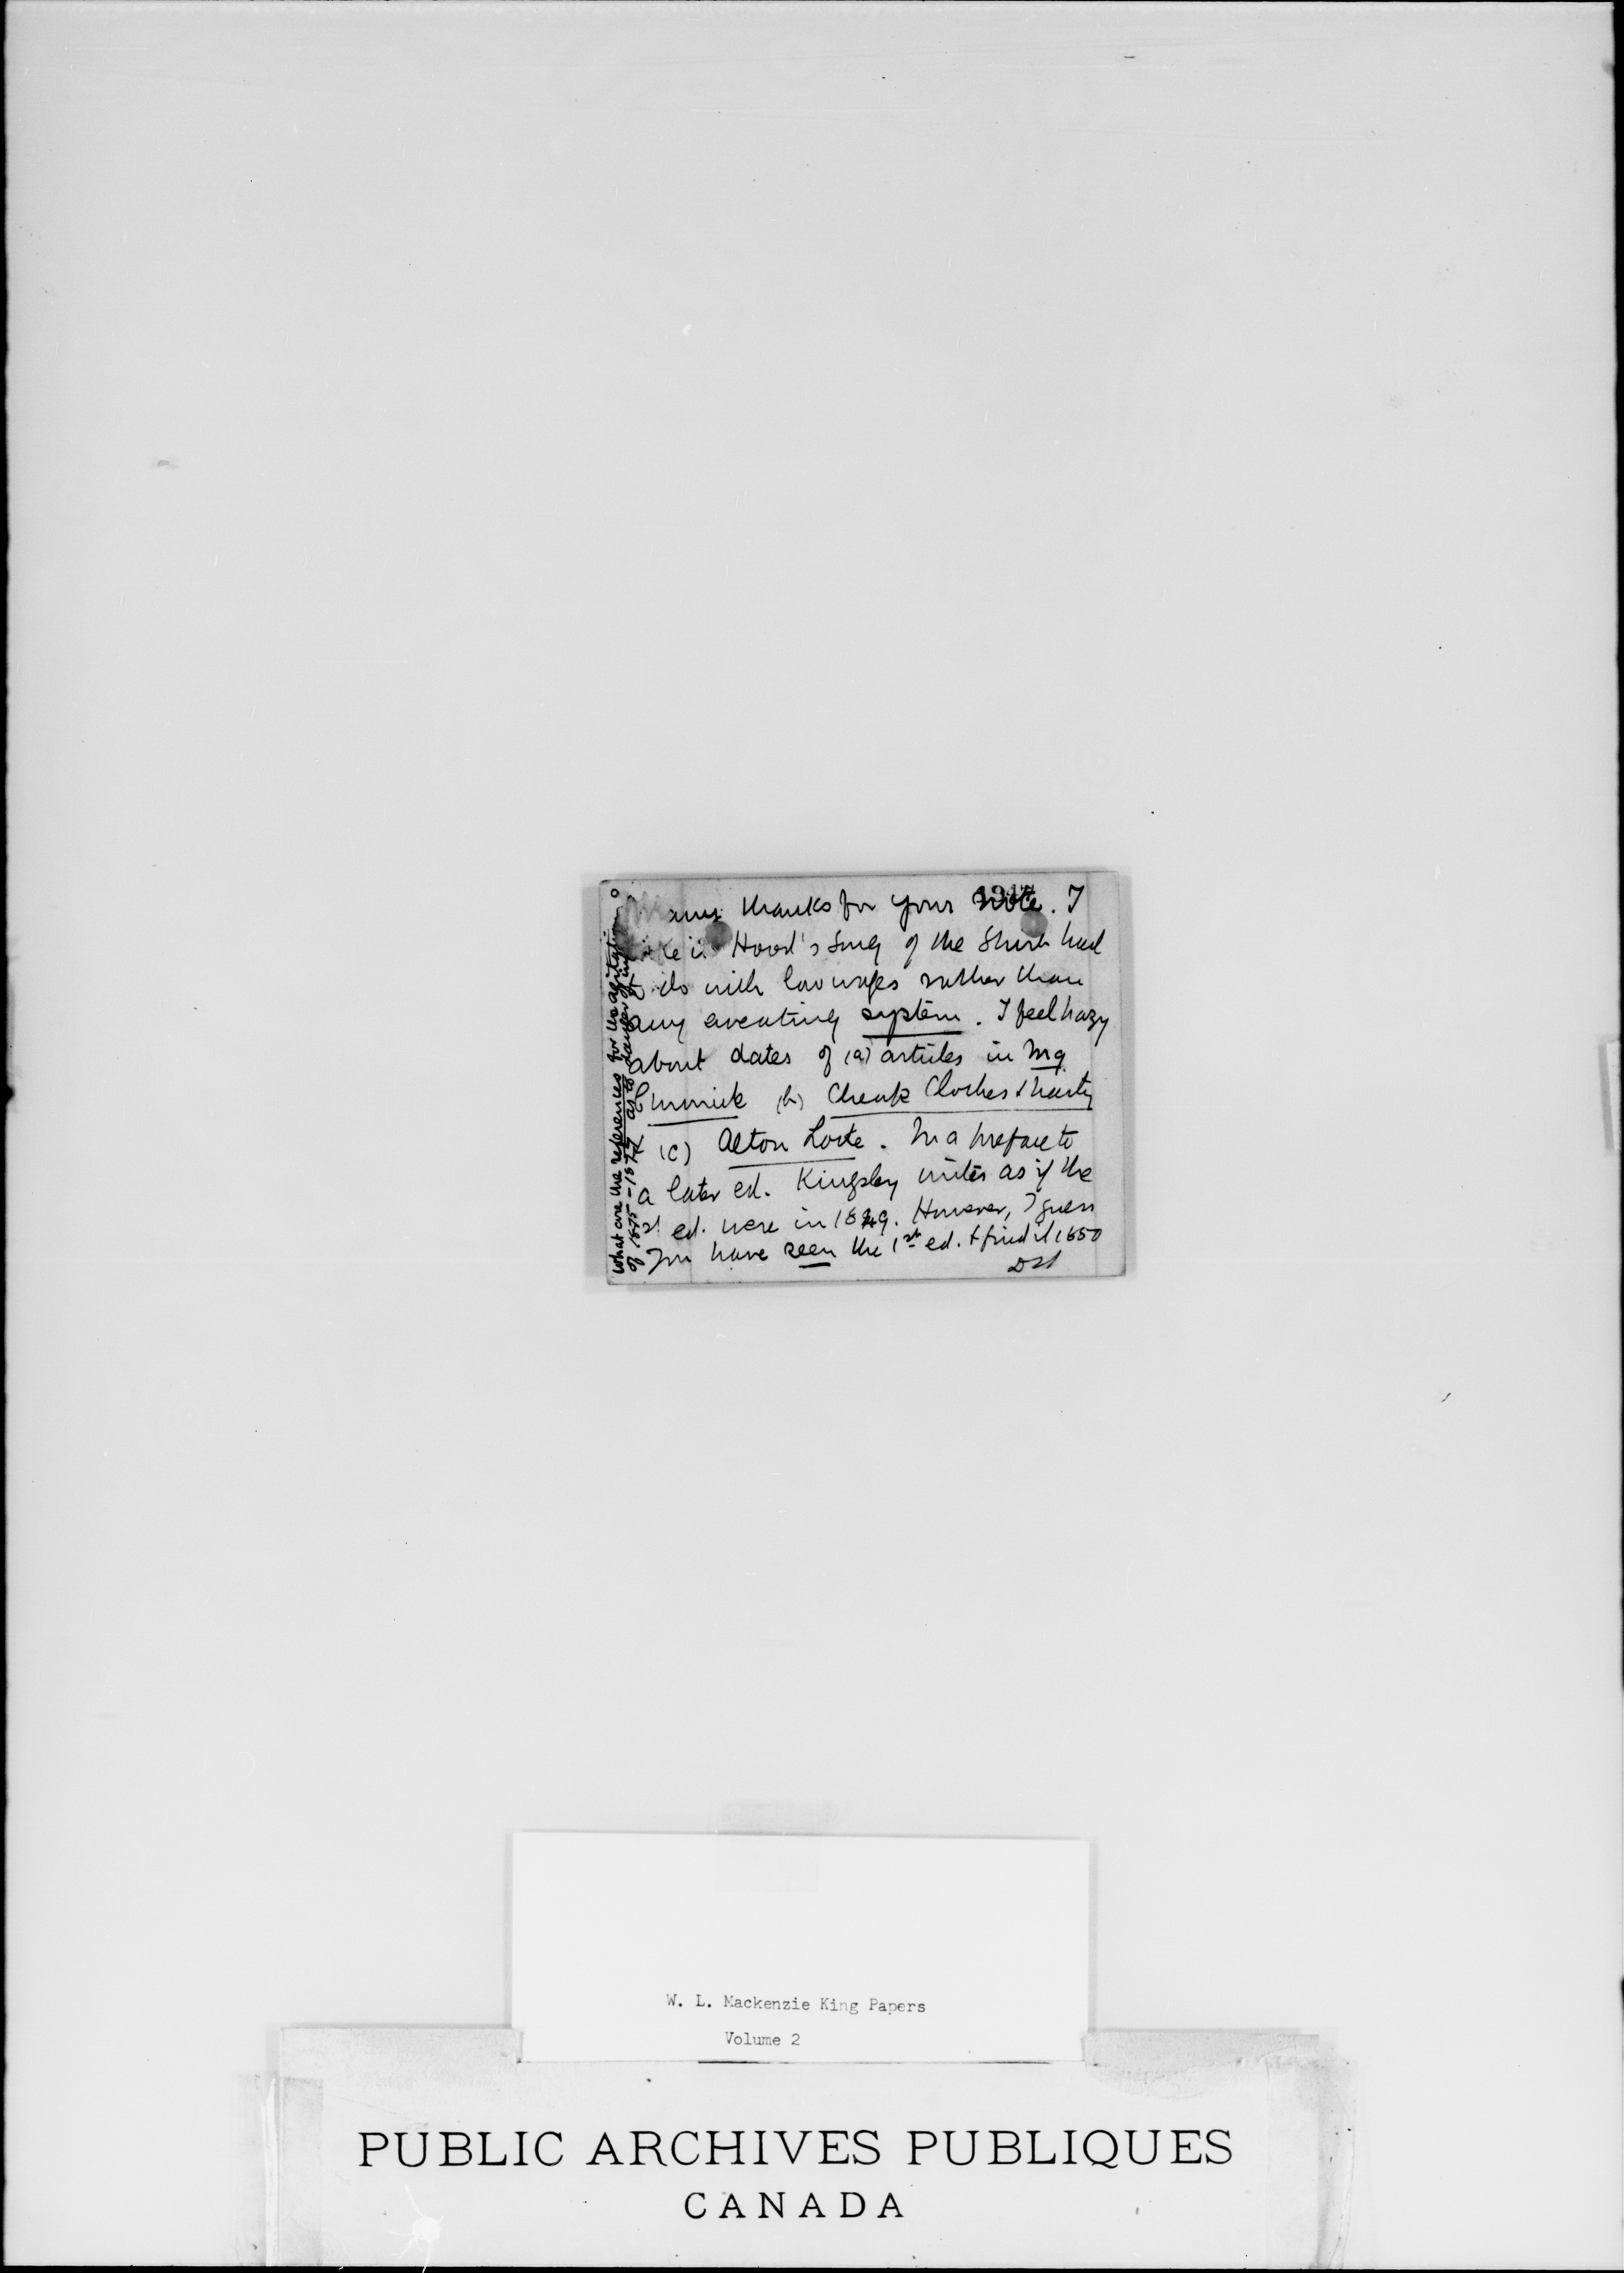 Many thanks for your note. I
like in Hood's Song of the Shirt had
to do with low wages rather than
any sweating system. I feel hazy
about dates of (a) articles in Mg
Chronicle (b) Cheap Clothes & Nasty
& (c) Alton Locke. In a preface to
a later ed. Kingsley writes as if the
1st ed. were in 1849. However, I guess
you have seen the 1st ed. & find it 1850
What are the references for the agitation
of 1875-1877 as to danger of
W. L. Mackenzie King Papers
Volume 2
PUBLIC ARCHIVES PUBLIQUES
CANADA